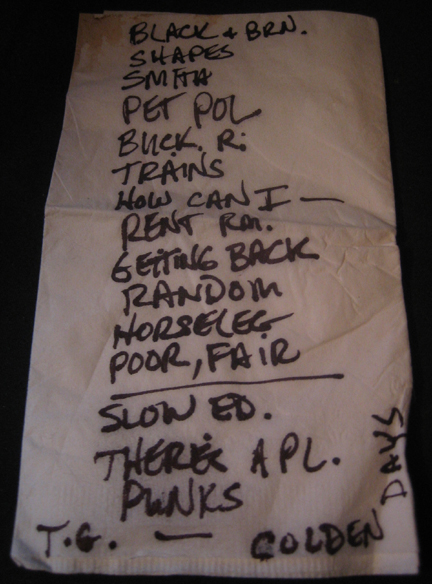 BLACK + BRN.
SHAPES
SMITH
PET POL
BUCK. R.
TRAINS
HOW CAN I —
RENT RM.
GETTING BACK
RANDOM
HORSELEG
POOR, FAIR
SLOW ED.
THERE'S A PL.
PUNKS
T.G. — GOLDEN DAYS